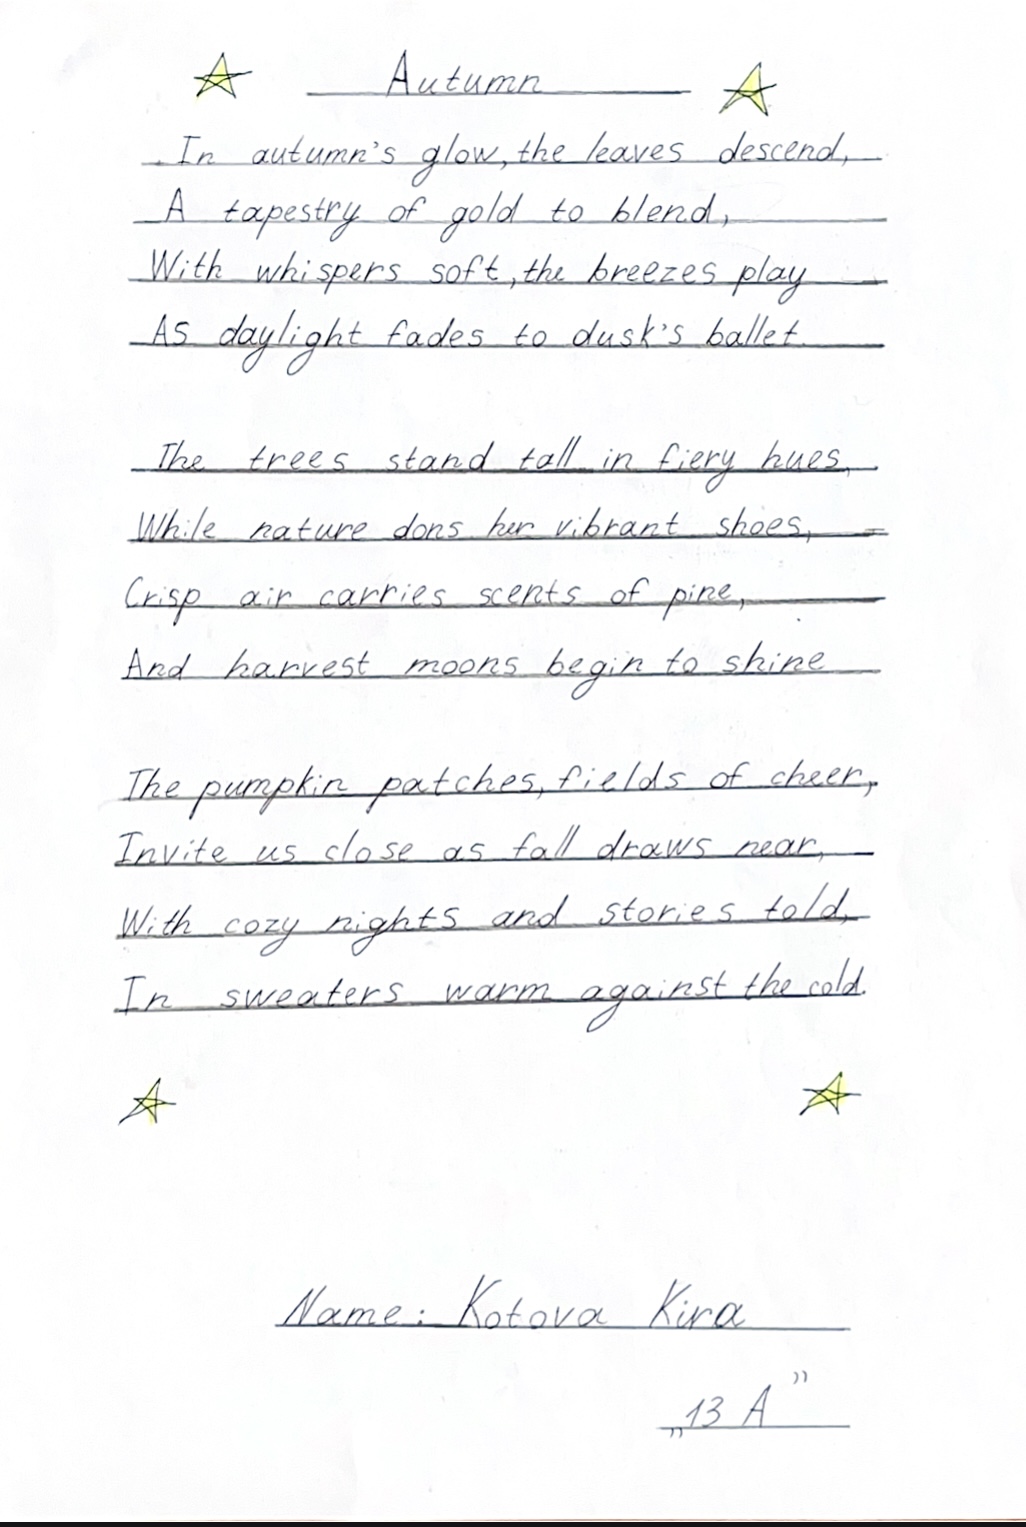 Autumn
In autumn's glow, the leaves descend,
A tapestry of gold to blend,
With whispers soft, the breezes play
As daylight fades to dusk's ballet.
The trees stand tall in fiery hues,
While nature dons her vibrant shoes,
Crisp air carries scents of pine,
And harvest moons begin to shine
The pumpkin patches, fields of cheer,
Invite us close as fall draws near,
With cozy nights and stories told,
In sweaters warm against the cold.
Name: Kotova Kira
„13 A”